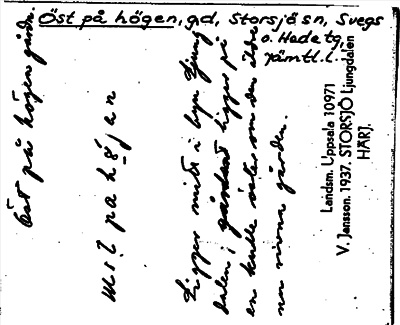 Öst på högen, gd, Storsjö sn, Svegs
o. Hede tg,
Jämtl. l.
Öst på högen gården.
Ligger mitt i byn Ljung
dalen; gården ligger på
en kulle öster om den
norra gården.
Landsm. Uppsala 10971
V. Jansson. 1937. STORSJÖ Ljungdalen
HÄRJ.